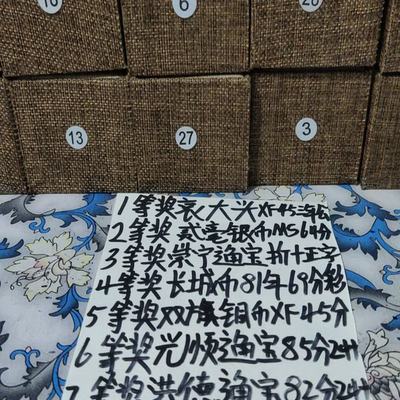 16 6 28
13 27 3
1等奖袁大头XF45三年
2等奖贰毫银币MS64分
3等奖崇宁通宝折十正字
4等奖长城币81年69分彩
5等奖双旗铜币XF45分
6等奖光顺通宝85分24
7等奖洪德通宝82分24